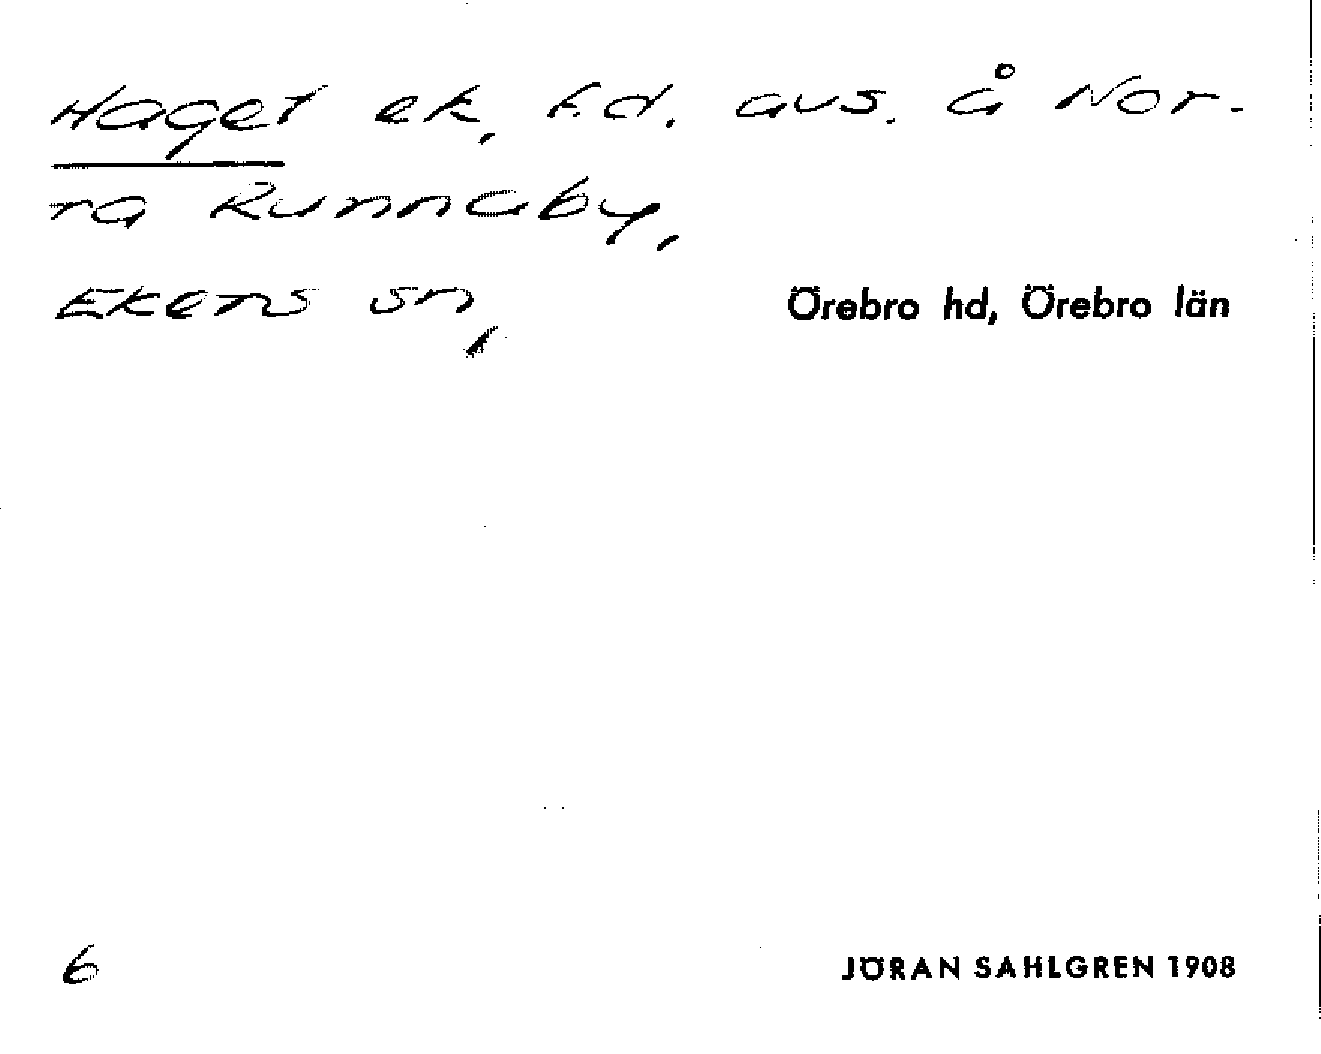 Haget ek, f.d. avs. å Nor-
ra Runnaby,
Ekers sn, Örebro hd, Örebro län
6 JÖRAN SAHLGREN 1908